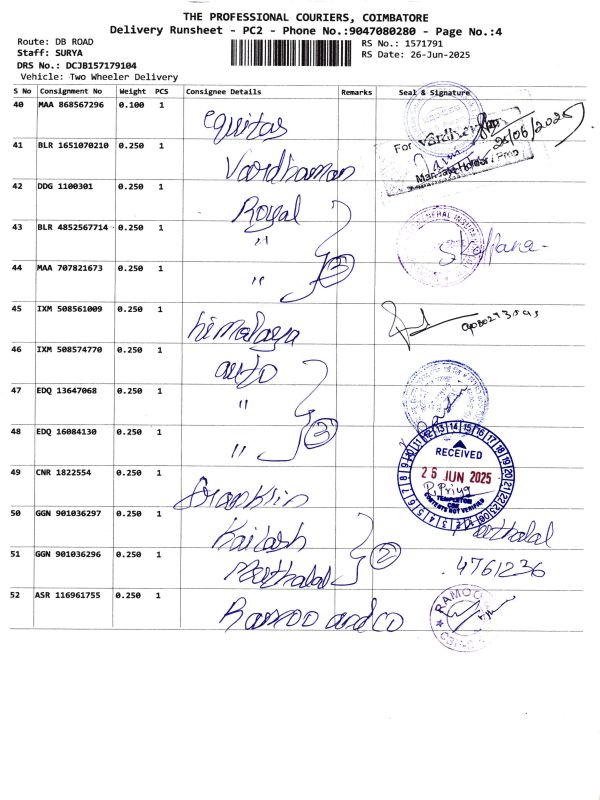 THE PROFESSIONAL COURIERS, COIMBATORE
Delivery Runsheet - PC2 - Phone No.:9047080280 - Page No.:4
Route: DB ROAD
Staff: SURYA
DRS No.: DCJB157179104
Vehicle: Two Wheeler Delivery
RS No.: 1571791
RS Date: 26-Jun-2025
S No Consignment No Weight PCS Consignee Details Remarks Seal & Signature
40 MAA 868567296 0.100 1 Equitas
For Vardhaman
26/06/2025
41 BLR 1651070210 0.250 1 Vardhaman
42 DDG 1100301 0.250 1 Royal
43 BLR 4852567714 0.250 1 "
44 MAA 707821673 0.250 1 " 3
45 IXM 508561009 0.250 1 himalaya
46 IXM 508574770 0.250 1 auto
47 EDQ 13647068 0.250 1 "
48 EDQ 16084130 0.250 1 " 3
RECEIVED
26 JUN 2025
P. Priya
TEMPLETON
CBE
CONTENTS NOT VERIFIED
49 CNR 1822554 0.250 1 Franklin
50 GGN 901036297 0.250 1 Kailash
51 GGN 901036296 0.250 1 Meethalal 2 4761236
52 ASR 116961755 0.250 1 Ramoo and co
RAMOO